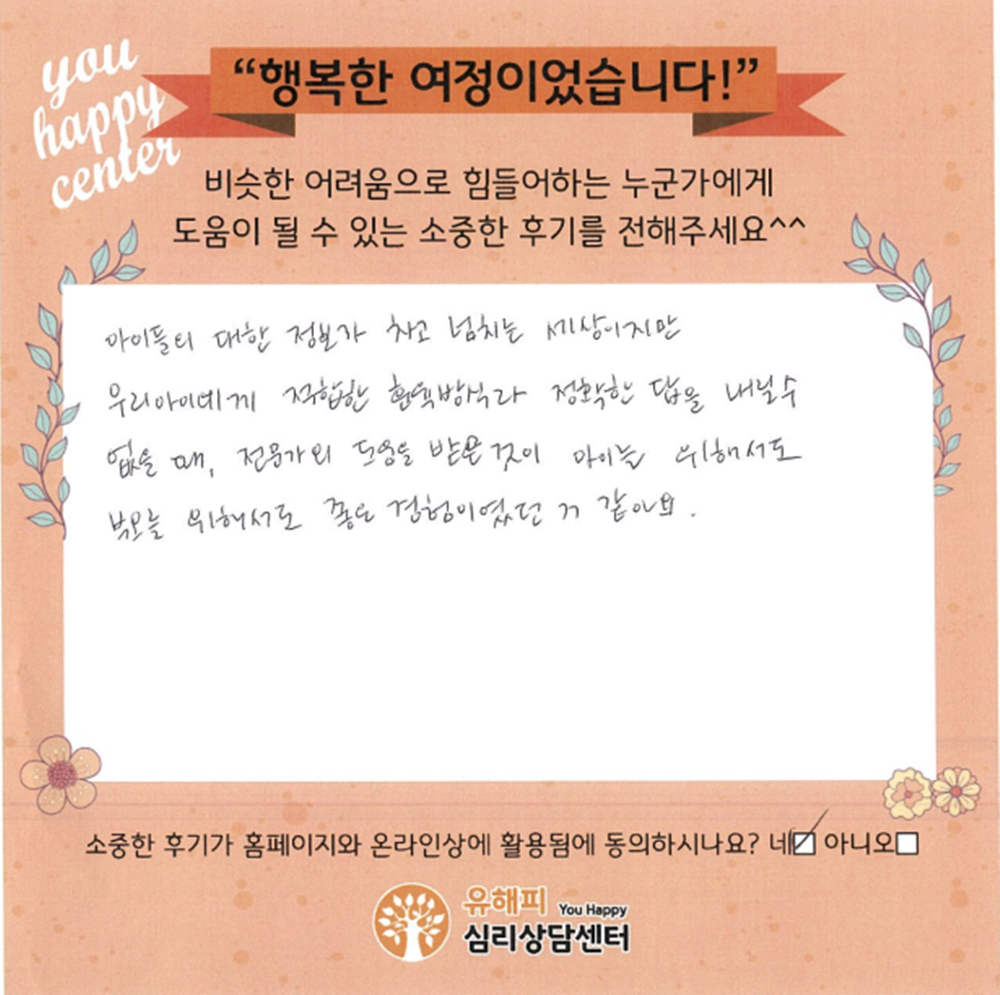 you
happy
center
“행복한 여정이었습니다!”
비슷한 어려움으로 힘들어하는 누군가에게
도움이 될 수 있는 소중한 후기를 전해주세요^^
아이들의 대한 정보가 차고 넘치는 세상이지만
우리아이에게 적합한 훈육방식과 정확한 답을 내릴수
없을 때, 전문가의 도움을 받은것이 아이를 위해서도
부모를 위해서도 좋은 경험이였던 거 같아요.
소중한 후기가 홈페이지와 온라인상에 활용됨에 동의하시나요? 네 아니오
유해피 You Happy
심리상담센터